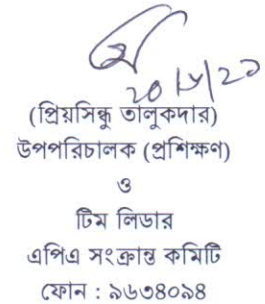 (প্রিয়সিন্ধু তালুকদার)
উপপরিচালক (প্রশিক্ষণ)
ও
টিম লিডার
এপিএ সংক্রান্ত কমিটি
ফোন : ৯৬৩৪০৯৪